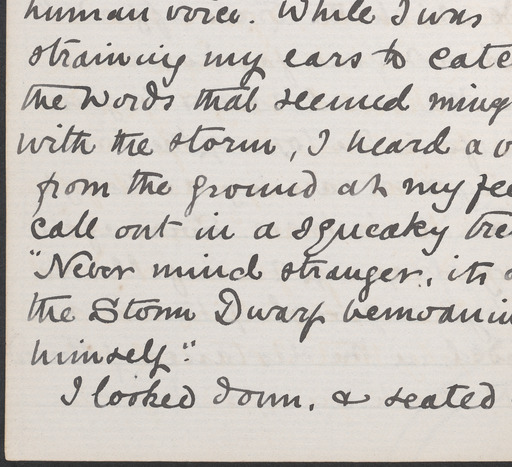 human voice. While I was
straining my ears to catc
the words that seemed ming
with the storm, I heard a v
from the ground at my fee
call out in a squeaky tre
"Never mind stranger, its
the Storm Dwarf bemoanin
himself."
I looked down, & seated